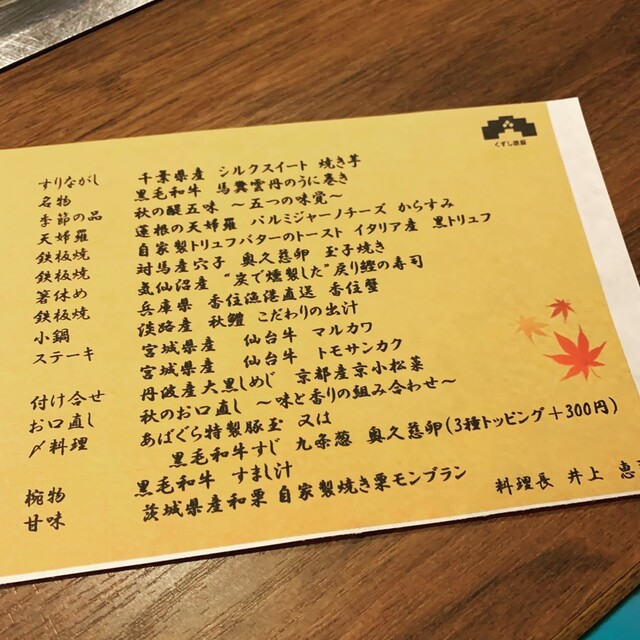 くずし鉄板
すりながし 千葉県産 シルクスイート 焼き芋
名物 黒毛和牛 馬糞雲丹のうに巻き
季節の品 秋の醍五味 ～五つの味覚～
天婦羅 蓮根の天婦羅 パルミジャーノチーズ からすみ
鉄板焼 自家製トリュフバターのトースト イタリア産 黒トリュフ
鉄板焼 対馬産穴子 奥久慈卵 玉子焼き
箸休め 気仙沼産 “炭で燻製した”戻り鰹の寿司
鉄板焼 兵庫県 香住漁港直送 香住蟹
小鍋 淡路産 秋鱧 こだわりの出汁
ステーキ 宮城県産 仙台牛 マルカワ
宮城県産 仙台牛 トモサンカク
付け合せ 丹波産大黒しめじ 京都産京小松菜
お口直し 秋のお口直し ～味と香りの組み合わせ～
〆料理 あばぐら特製豚玉 又は
黒毛和牛すじ 九条葱 奥久慈卵(3種トッピング＋300円)
椀物 黒毛和牛 すまし汁
甘味 茨城県産和栗 自家製焼き栗モンブラン
料理長 井上 恵